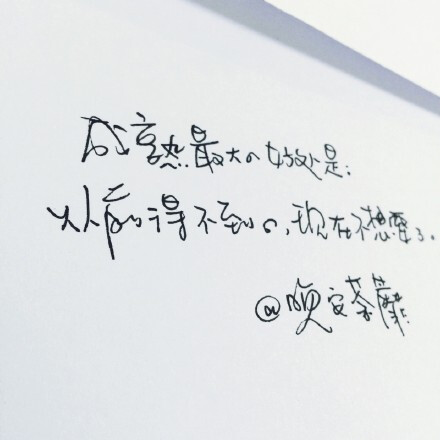 成熟最大的好处是:
以前得不到的,现在不想要了。
@晚安荼蘼